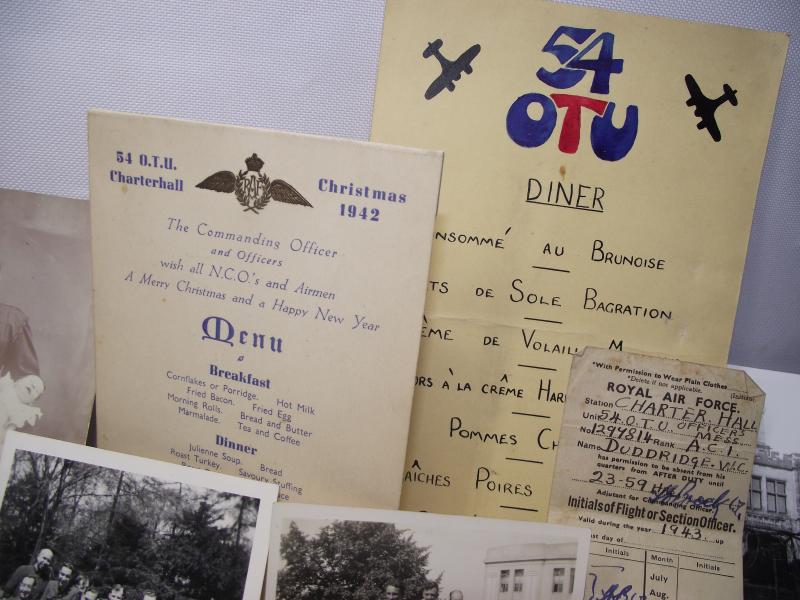 54 O.T.U.
Charterhall
RAF
Christmas
1942
The Commanding Officer
and Officers
wish all N.C.O.'s and Airmen
A Merry Christmas and a Happy New Year
Menu
Breakfast
Cornflakes or Porridge. Hot Milk
Fried Bacon. Fried Egg
Morning Rolls. Bread and Butter
Marmalade. Tea and Coffee
Dinner
Julienne Soup. Bread
Roast Turkey. Savoury Stuffing
54
OTU
DINER
NSOMMÉ AU BRUNOISE
TS DE SOLE BAGRATION
ÈME DE VOLAILL M
RS À LA CRÊME HAR
POMMES CH
AÎCHES POIRES
*With Permission to Wear Plain Clothes
*Delete if not applicable. (Initials)
ROYAL AIR FORCE.
Station CHARTER HALL
Unit 54 O.T.U OFFICERS MESS
No 1294814 Rank A.C.1.
Name DUDDRIDGE. V.I.C.
has permission to be absent from his
quarters from AFTER DUTY until
23-59 Hrs
Adjutant for Commanding Officer.
Initials of Flight or Section Officer.
Valid during the year 1943. up
last day of
Initials Month Initials
July
Aug.